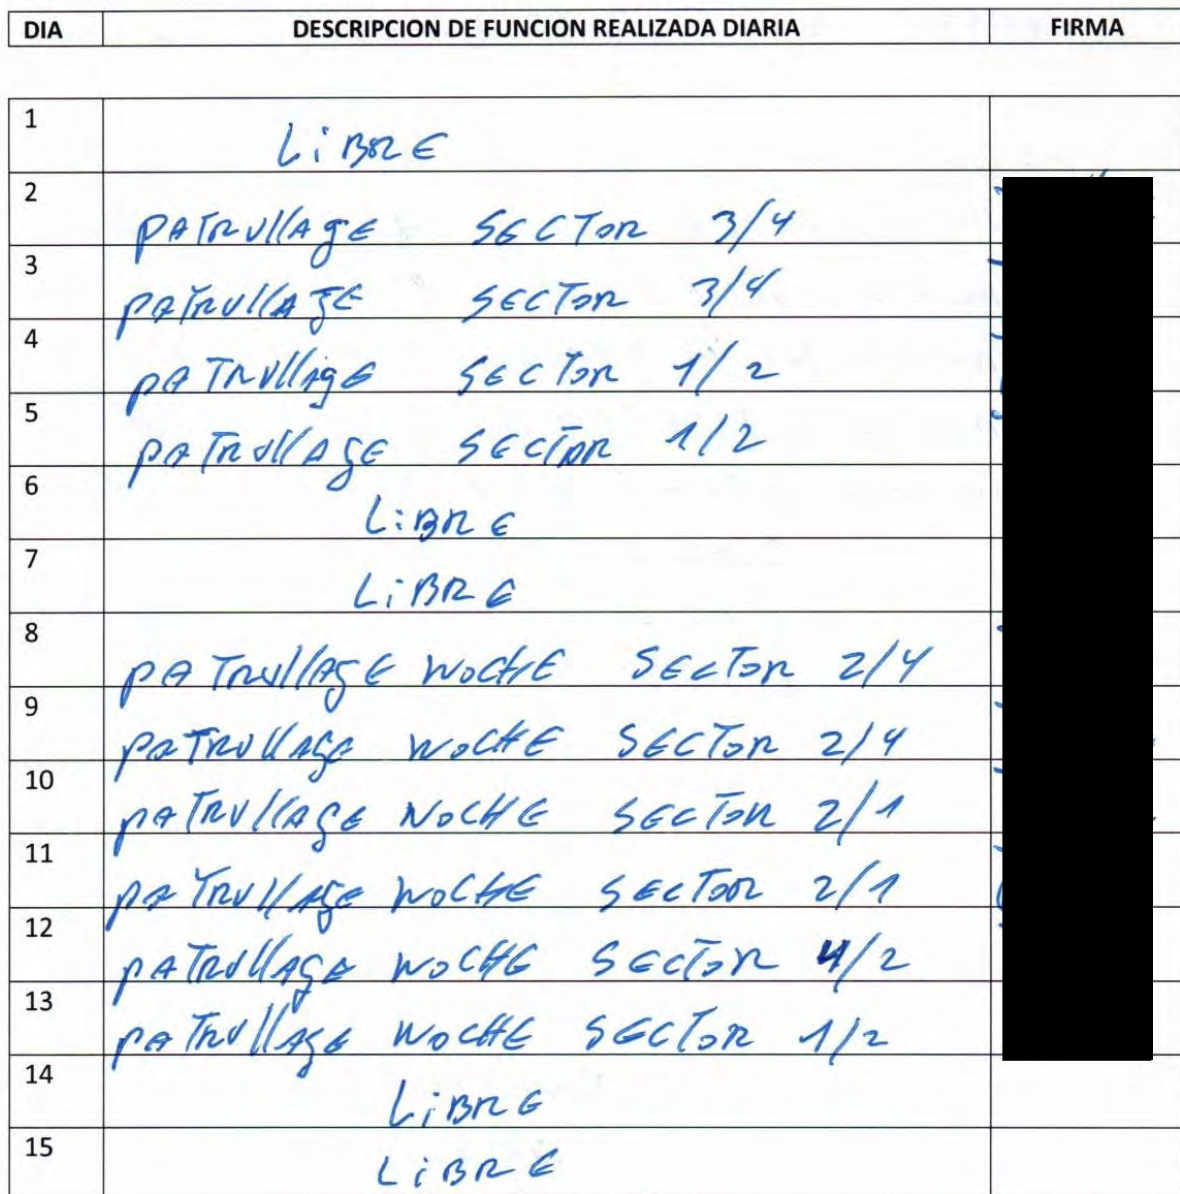 DIA DESCRIPCION DE FUNCION REALIZADA DIARIA FIRMA
1 LiBRE
2 PATRULLAGE SECTOR 3/4
3 PATRULLAGE SECTOR 3/4
4 PATRULLAGE SECTOR 1/2
5 PATRULLAGE SECTOR 1/2
6 LiBRE
7 LiBRE
8 PATRULLAGE NOCHE SECTOR 2/4
9 PATRULLAGE NOCHE SECTOR 2/4
10 PATRULLAGE NOCHE SECTOR 2/1
11 PATRULLAGE NOCHE SECTOR 2/1
12 PATRULLAGE NOCHE SECTOR 4/2
13 PATRULLAGE NOCHE SECTOR 1/2
14 LiBRE
15 LiBRE